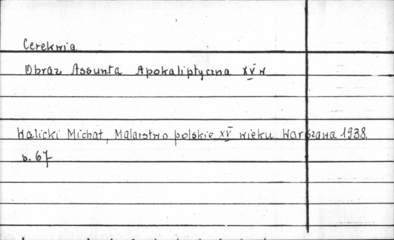 Cerekwia
Obraz Assunta Apokaliptyczna XV w
Walicki Michał, Malarstwo polskie XV wieku. Warszawa 1938
s. 67